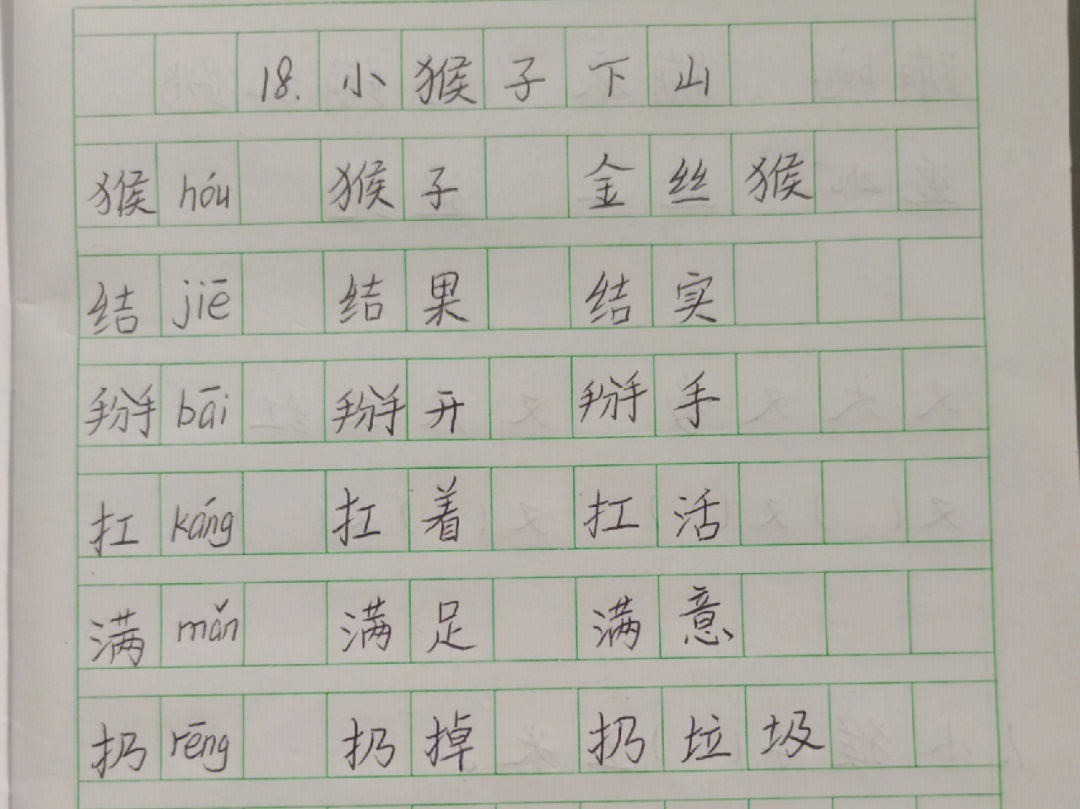 18.小猴子下山
猴 hóu 猴子 金丝猴
结 jiē 结果 结实
掰 bāi 掰开 掰手
扛 káng 扛着 扛活
满 mǎn 满足 满意
扔 rēng 扔掉 扔垃圾